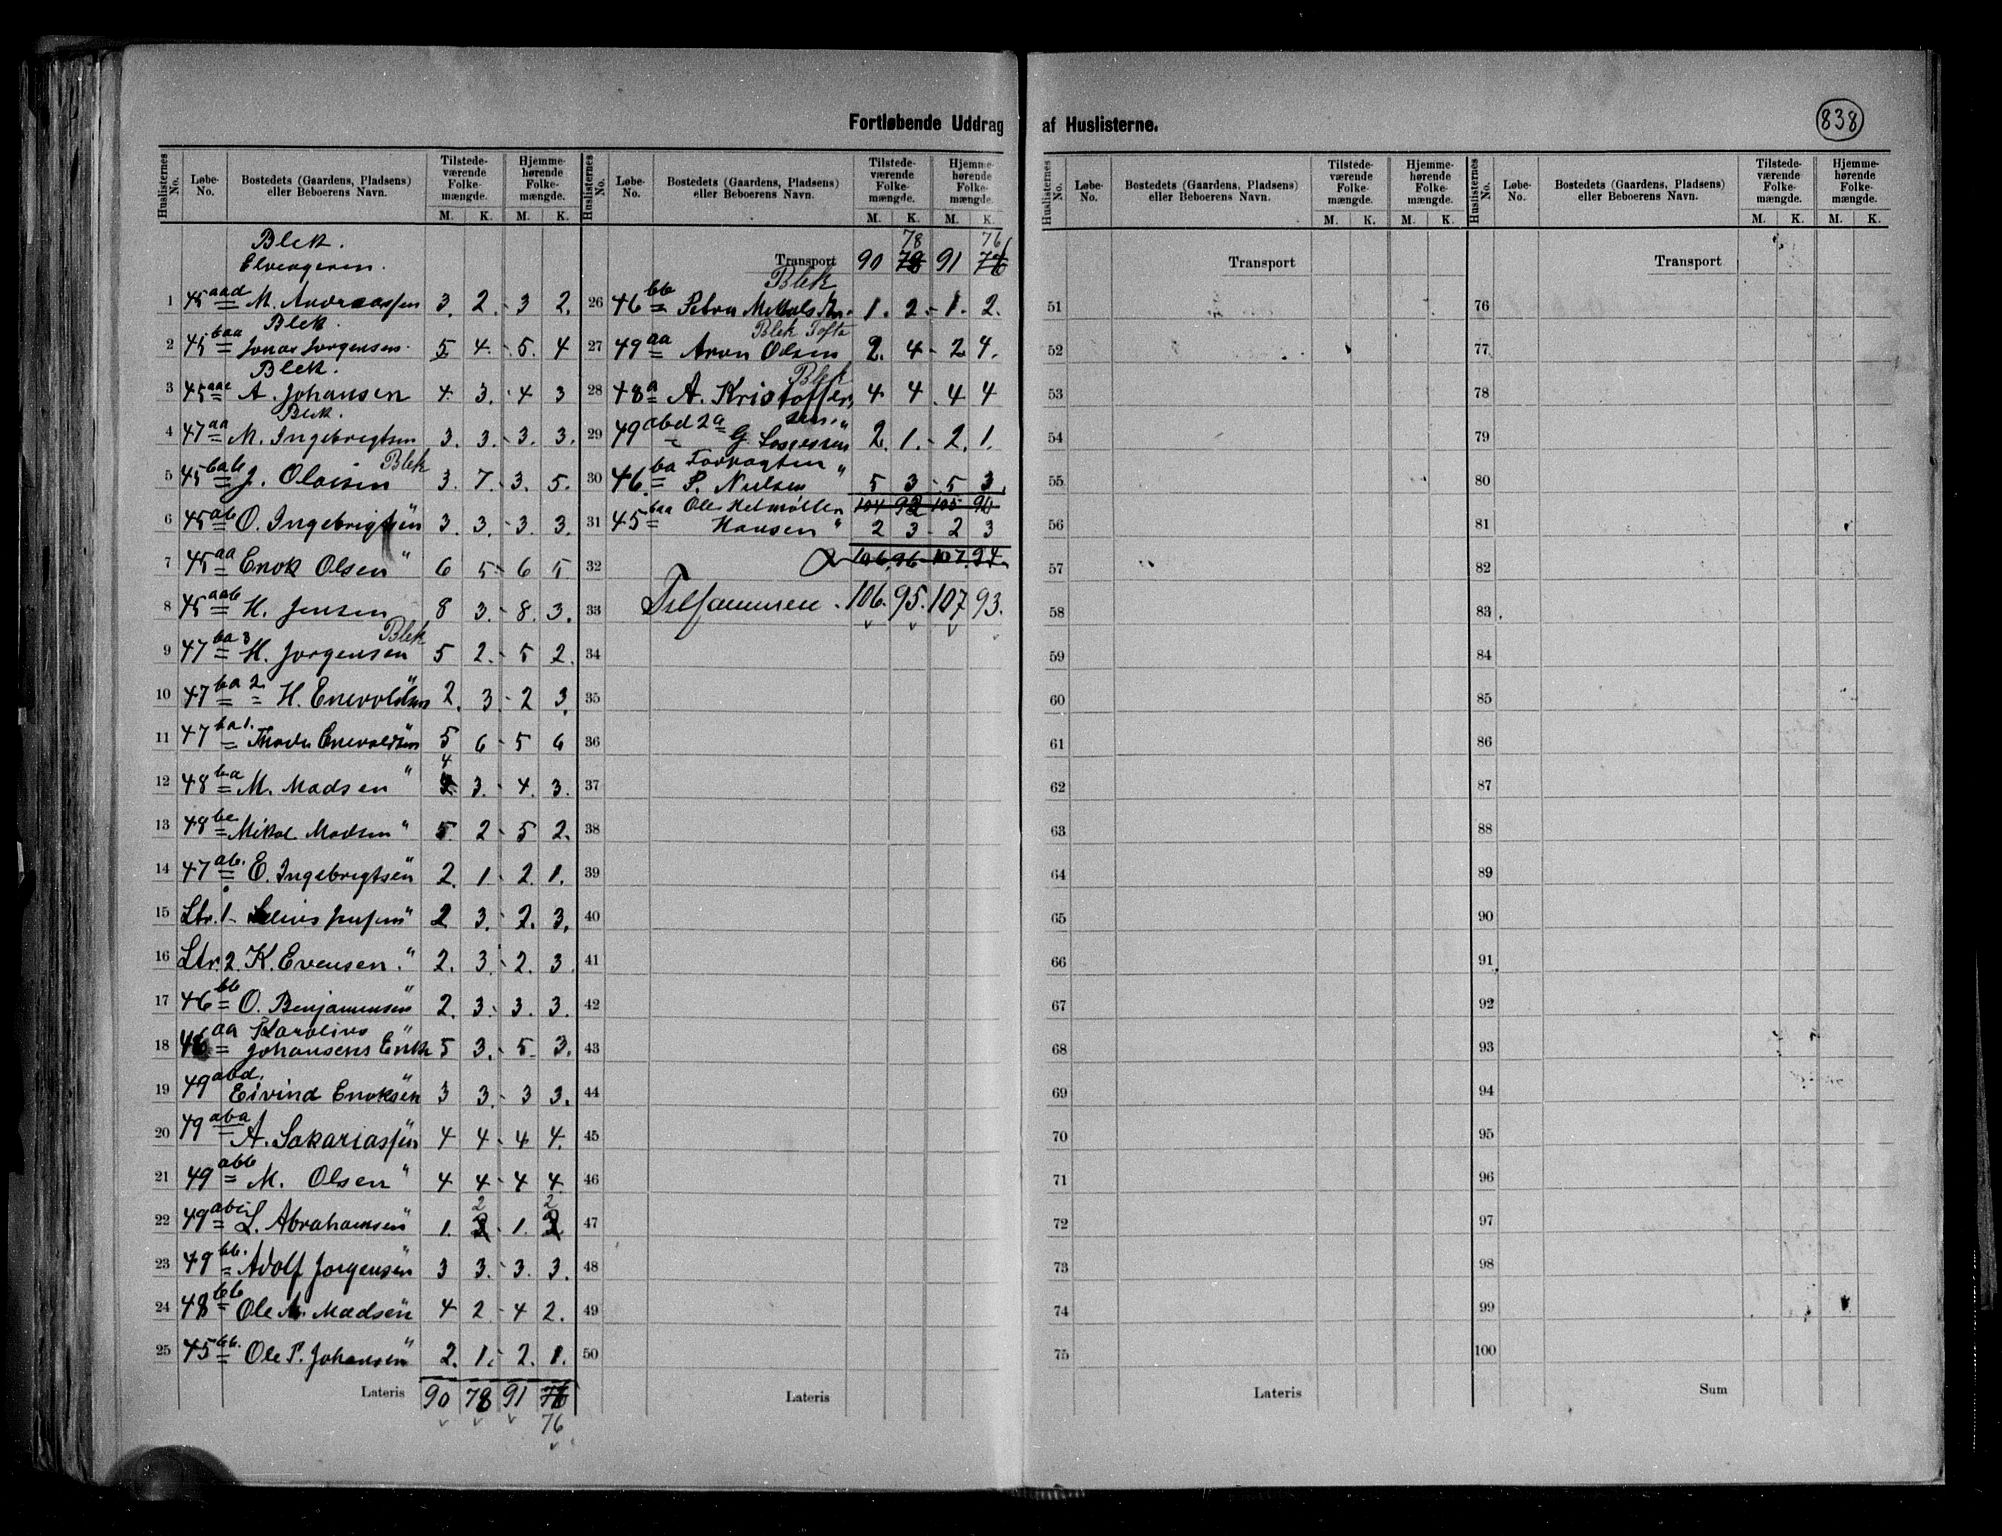 838
Fortløbende Uddrag af Huslisterne.
Huslisternes No. Løbe-No. Bostedets (Gaardens, Pladsens) eller Beboerens Navn. Tilstedeværende Folkemængde. Hjemmehørende Folkemængde. M. K. M. K.
Huslisternes No. Løbe-No. Bostedets (Gaardens, Pladsens) eller Beboerens Navn. Tilstedeværende Folkemængde. Hjemmehørende Folkemængde. M. K. M. K.
Blek.
1 45 aad M. Andreassen 3. 2. 3 2.
Blek.
2 45 baa Jonas Jorgensen. 5 4. 5. 4
Blek.
3 45 aac A. Johansen 4 3. 4 3
Blek.
4 47 aa M. Ingebrigtsen 3. 3. 3. 3.
5 45 bab J. Olaisen Blek 3. 7. 3. 5.
6 45 ab O. Ingebrigtsen " 3. 3. 3. 3.
7 45 aa Enok Olsen " 6 5 6 5
8 45 aab H. Jensen 8 3. 8. 3.
9 47 ba 3 H. Jorgensen Blek 5 2. 5 2.
10 47 ba 2 H. Enevoldsen " 2. 3. 2 3.
11 47 ba 1. Enevoldsen " 5 6 5 6
12 48 ba M. Madsen " 4 3. 4. 3.
13 48 bc Mikal Madsen " 5. 2 5 2.
14 47 ab. E. Ingebrigtsen " 2. 1. 2. 1.
15 Ltr. 1 Jensen " 2 3. 2. 3.
16 Ltr. 2. K. Evensen. " 2. 3. 2. 3.
17 46 bb O. Benjamensen " 2. 3. 3. 3.
18 46 aa Karolius Johansens Enk " 5 3. 5. 3.
19 49 abd. Eivind Enoksen " 3 3. 3 3.
20 49 aba A. Sakariassen " 4 4 4 4.
21 49 abb M. Olsen " 4 4 4 4.
22 49 abc L. Abrahamsen " 1. 2 1. 2
23 49 bb. Adolf Jorgensen " 3 3. 3. 3.
24 48 bb Ole A. Madsen " 4 2 4 2.
25 45 bb. Ole P. Johansen " 2. 1. 2. 1.
Lateris 90 78 91 76
76
Transport 90 78 91 76
Blek
26 46 bb Petra 1. 2. 1. 2.
Blek Tofta
27 49 aa Aron Olsen 2. 4 2 4.
Blek
28 48 a A. Kristoffersen " 4 4. 4 4
29 49 abd 2a G. 2. 1. 2. 1.
30 46. ba P. Nielsen " 5 3 5 3.
104 92 105 90
31 45 baa Ole Hansen " 2 3 2 3
32 106. 96 107. 94.
33 Tilsammen. 106. 95. 107. 93.
34
35
36
37
38
39
40
41
42
43
44
45
46
47
48
49
50
Lateris
Huslisternes No. Løbe-No. Bostedets (Gaardens, Pladsens) eller Beboerens Navn. Tilstedeværende Folkemængde. Hjemmehørende Folkemængde. M. K. M. K.
Transport
51
52
53
54
55
56
57
58
59
60
61
62
63
64
65
66
67
68
69
70
71
72
73
74
75
Lateris
Huslisternes No. Løbe-No. Bostedets (Gaardens, Pladsens) eller Beboerens Navn. Tilstedeværende Folkemængde. Hjemmehørende Folkemængde. M. K. M. K.
Transport
76
77
78
79
80
81
82
83
84
85
86
87
88
89
90
91
92
93
94
95
96
97
98
99
100
Sum